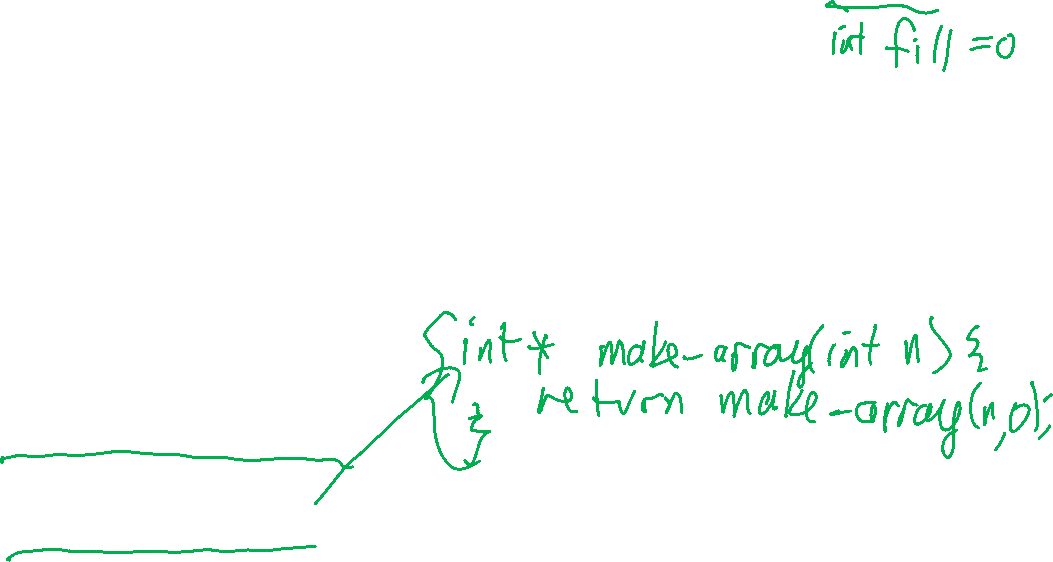 int fill =0
int* make_array(int n) {
return make_array(n,0);
}